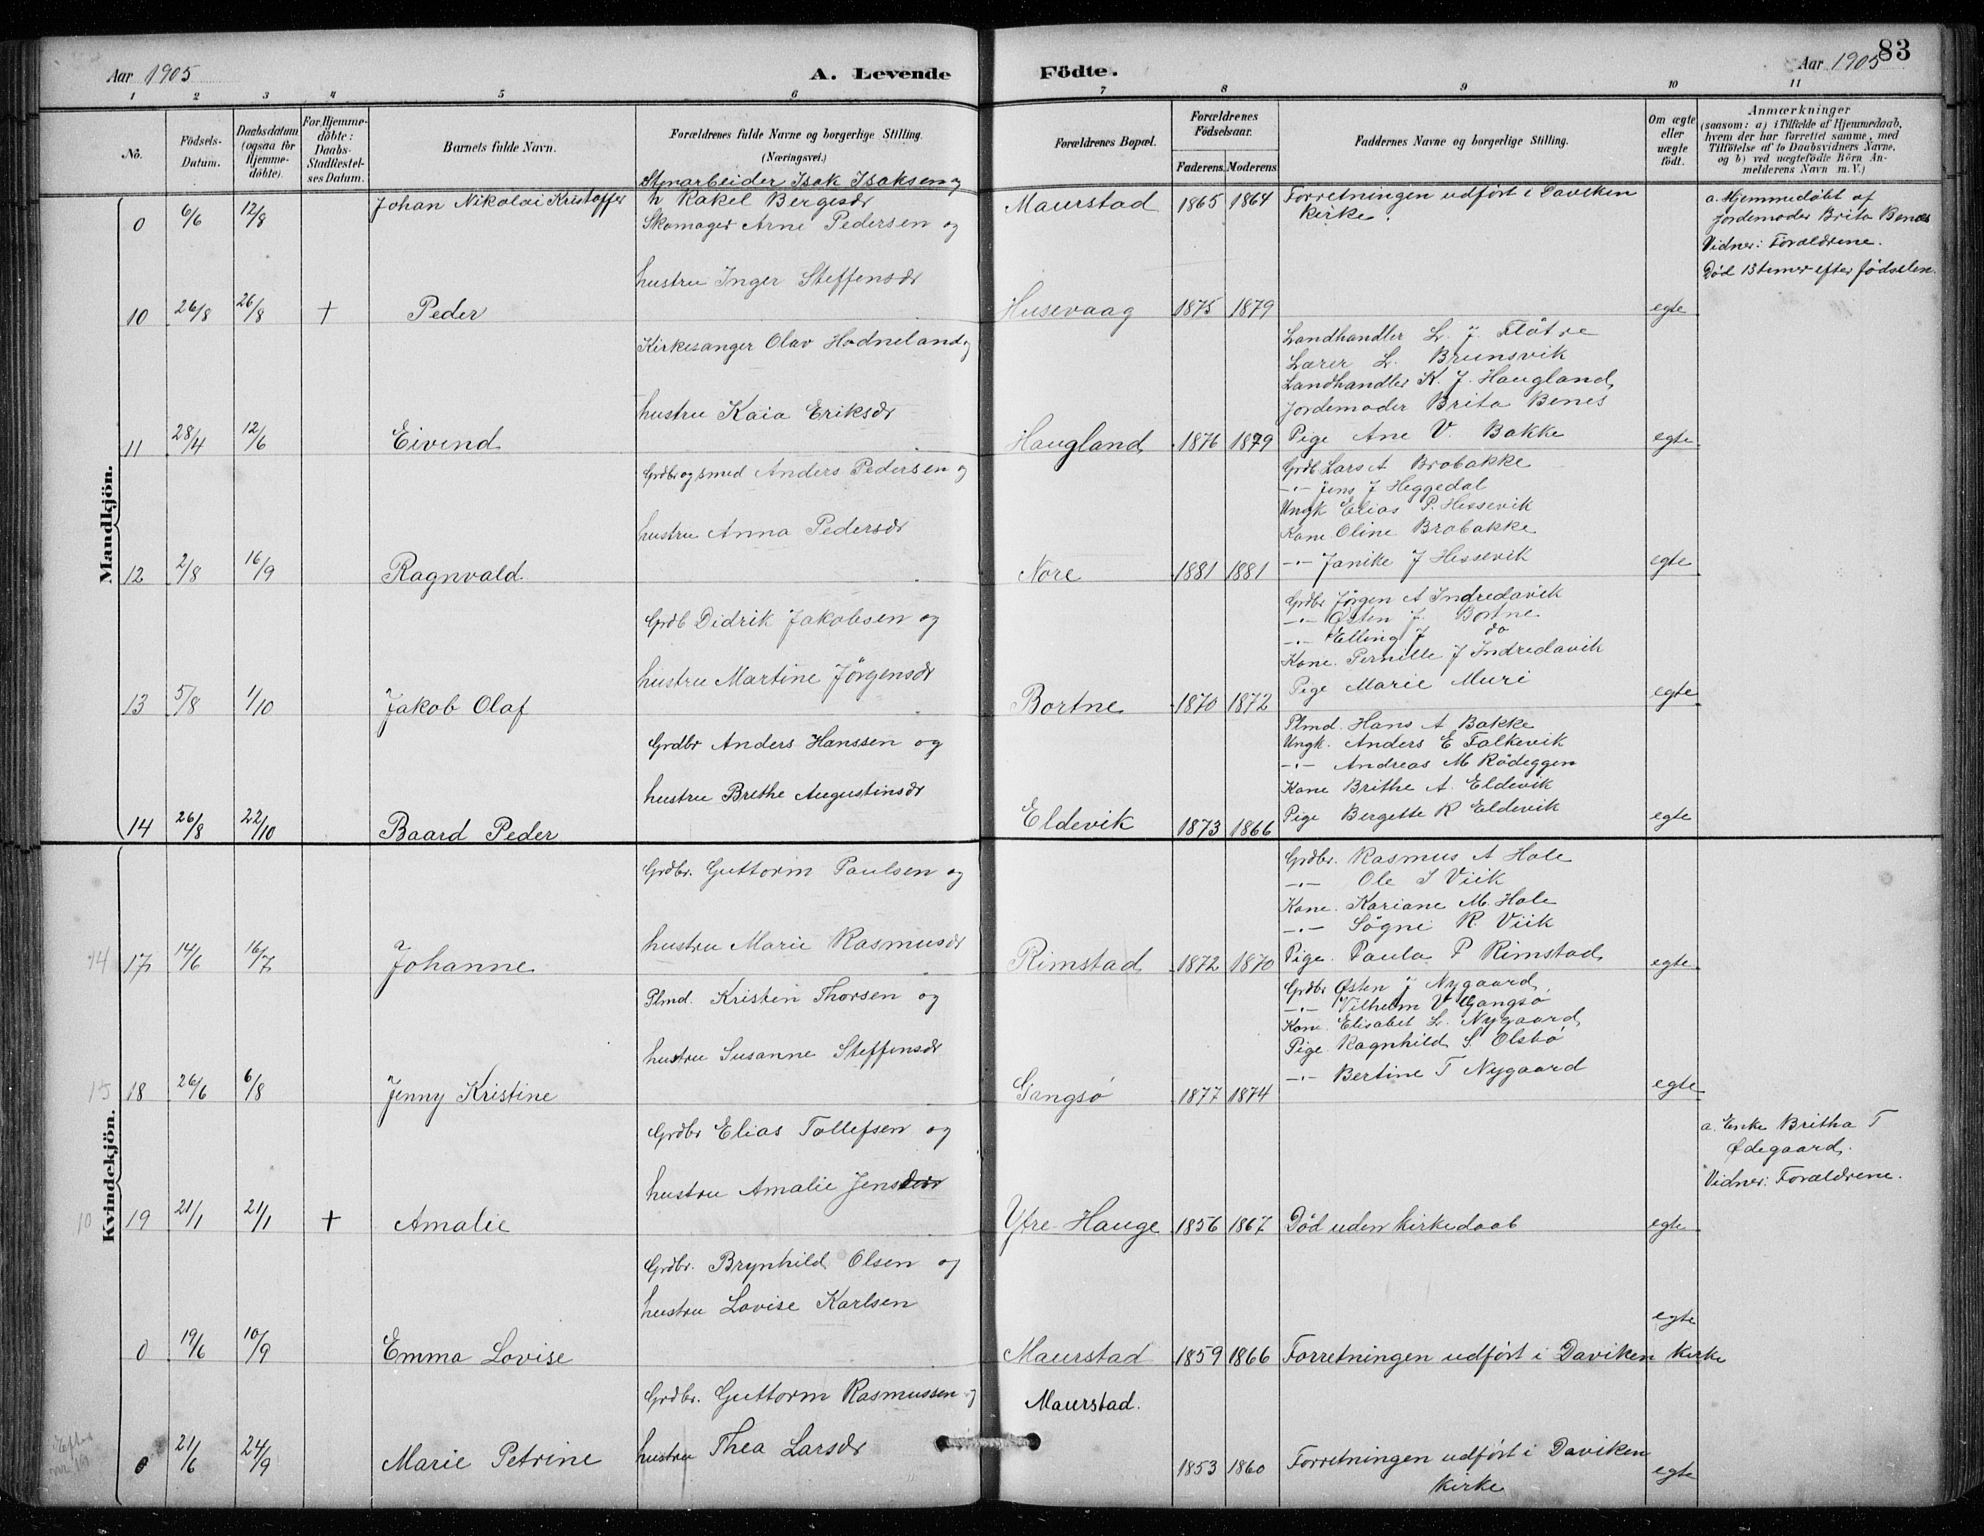 83
Aar 1905
A. Levende
Födte.
Aar 1905
1 2 3 4 5 6 7 8 9 10 11
No.
Födsels-
Datum.
Daabsdatum
(ogsaa for
Hjemme-
döbte).
For Hjemme-
döbte:
Daabs-
Stadfæstel-
ses Datum.
Barnets fulde Navn.
Forældrenes fulde Navne og borgerlige Stilling.
(Næringsvei.)
Forældrenes Bopæl.
Forældrenes
Födselsaar.
Faderens. Moderens
Faddernes Navne og borgerlige Stilling.
Om ægte
eller
uægte
født.
Anmærkninger
(saasom: a) i Tilfælde af Hjemmedaab,
hvem der har forrettet samme, med
Tilföielse af to Daabsvidners Navne,
og b) ved uægtefödte Börn An-
melderens Navn m. V.)
Mandkjön.
0 6/6 12/8 Johan Nikolai Kristoffer
Isak Isaksen og
h Rakel Bergesdr
Maurstad 1865 1864
Forretningen udført i Daviken
Kirke.
a. Hjemmedøbt af
Jordemoder Brita Benes
Vidner: Forældrene.
Død 13 timer efter fødselen.
10 26/8 26/8 + Peder
Skomager Arne Pedersen og
hustru Inger Steffensdr
Husevaag 1875 1879
egte
11 28/4 12/6 Eivend
Kirkesanger Olav Hodneland og
hustru Kaia Eriksdr
Haugland 1876 1879
Landhandler L. J. Fløtre
Lærer L. Brunsvik
Landhandler K. J. Haugland
Jordemoder Brita Benes
Pige Ane V. Bakke
egte
12 2/8 16/9 Ragnvald
Grdbr og smed Anders Pedersen og
hustru Anna Pedersdr
Nore 1881 1881
Grdb Lars A Brobakke
-"- Jens J Heggedal
Ungk Elias P. Hessevik
Kone Oline Brobakke
-"- Janike J Hessevik
egte
13 5/8 1/10 Jakob Olaf
Grdb Didrik Jakobsen og
hustru Martine Jørgensdr
Bortne 1870 1872
Grdbr Jørgen A Indredavik
-"- Østen J. Bortne
-"- Elling J do
Kone. Pernille J Indredavik
Pige Marie Muri
egte
14 26/8 22/10 Baard Peder
Grdbr Anders Hanssen og
hustru Brethe Augustinsdr
Eldevik 1873 1866
Plmd. Hans A Bakke
Ungk. Anders E Falkevik
-"- Andreas M Rødeggen
Kone Brithe A. Eldevik
Pige Bergette R Eldevik
egte
Kvindekjön.
14 17 14/6 16/7 Johanne
Grdbr. Guttorm Paulsen og
hustru Marie Rasmusdr
Rimstad 1872 1870
Grdbr. Rasmus A Hole
-"- Ole I Viik
Kone. Kariane M. Hole
-"- Søgni R. Viik
Pige. Paula P Rimstad
egte
15 18 26/6 6/8 Jenny Kristine
Plmd. Kristen Thorsen og
hustru Susanne Steffensdr
Gangsø 1877 1874
Grdbr Østen J Nygaard
-"- Vilhelm V Gangsø
Kone. Elisabet L. Nygaard
Pige Ragnhild S. Olsbø
-"- Bertine T Nygaard
egte
10 19 21/1 21/1 + Amalie
Grdbr Elias Tollefsen og
hustru Amalie
Ytre Hauge 1856 1867
Død uden kirkedaab
egte
a. Enke Britha T
Ødegaard.
Vidner: Forældrene.
0 19/6 10/9 Emma Lovise
Grdbr. Brynhild Olsen og
hustru Lovise Karlsen
Maurstad 1859 1866
Forretningen udført i Daviken Kirke
egte
Efter
0 21/6 24/9 Marie Petrine
Grdbr. Guttorm Rasmussen og
hustru Thea Larsdr
Maurstad.
1853 1860
Forretningen udført i Daviken
Kirke
egte